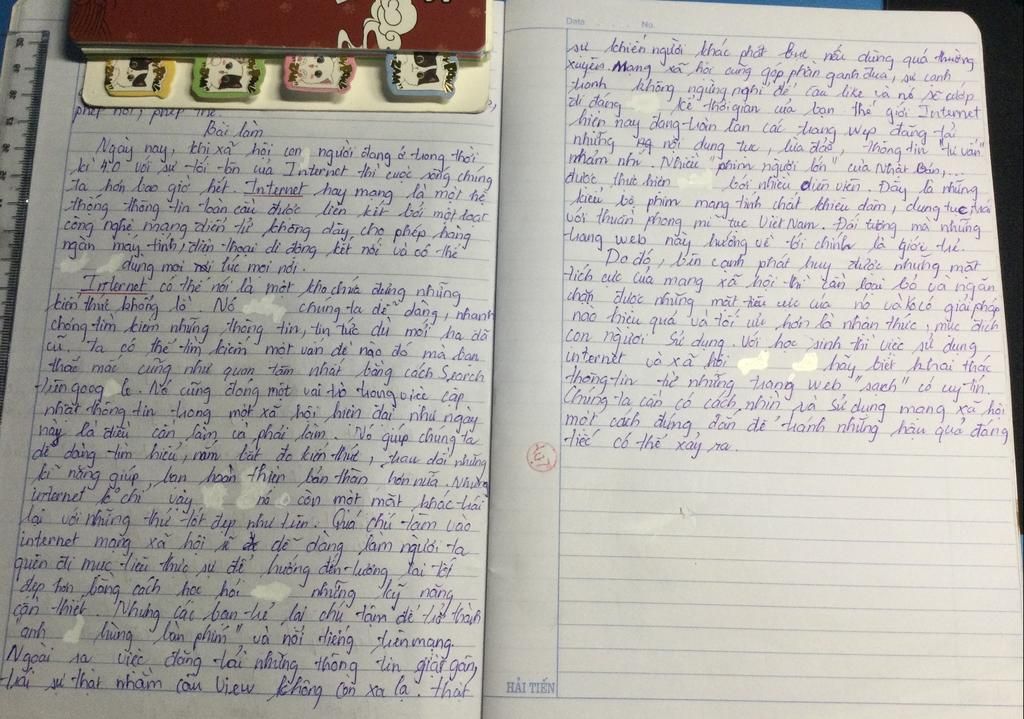 phép nối, phép thế.
Bài làm
Ngày nay, khi xã hội con người đang ở trong thời
kì 4.0 với sự tối tân của Internet thì cuộc sống chúng
ta hơn bao giờ hết. Internet hay mạng là một hệ
thống thông tin toàn cầu được liên kết bởi một loạt
công nghệ mạng điện tử không dây, cho phép hàng
ngàn máy tính, điện thoại di động kết nối và có thể
dùng mọi lúc mọi nơi.
Internet có thể nói là một kho chứa đựng những
kiến thức khổng lồ. Nó chúng ta dễ dàng, nhanh
chóng tìm kiếm những thông tin, tin tức dù mới hay đã
cũ. Ta có thể tìm kiếm một vấn đề nào đó mà bạn
thắc mắc cũng như quan tâm nhất bằng cách Search
trên google. Nó cũng đóng một vai trò trong việc cập
nhật thông tin trong một xã hội hiện đại như ngày
nay là điều cần làm và phải làm. Nó giúp chúng ta
dễ dàng tìm hiểu, nắm bắt đc kiến thức, trau dồi những
kĩ năng giúp bạn hoàn thiện bản thân hơn nữa. Nhưng
internet k chỉ vậy nó còn một mặt khác trái
lại với những thứ tốt đẹp như trên. Quá chú tâm vào
internet mạng xã hội sẽ dễ dàng làm người ta
quên đi mục tiêu thực sự để hướng đến tương lai tốt
đẹp hơn bằng cách học hỏi những kỹ năng
cần thiết. Nhưng các bạn trẻ lại chú tâm để trở thành
"anh hùng bàn phím" và nổi tiếng trên mạng.
Ngoài ra việc đăng tải những thông tin giật gân,
trái sự thật nhằm câu View không còn xa lạ. thật
sự khiến người khác phát bực nếu dùng quá thường
xuyên. Mạng xã hội cũng góp phần ganh đua, sự cạnh
tranh không ngừng nghỉ để câu like và nó sẽ cướp
đi đáng kể thời gian của bạn thế giới Internet
hiện nay đang tràn lan các trang Wep đăng tải
những nội dung tục, lừa đảo, thông tin "tư vấn"
nhảm nhí. Nhiều "phim người lớn" của Nhật Bản,...
được thực hiện bởi nhiều diễn viên. Đây là những
kiểu bộ phim mang tính chất khiêu dâm, dung tục, trái
với thuần phong mĩ tục Việt Nam. Đối tượng mà những
trang web này hướng về tới chính là giới trẻ.
Do đó, bên cạnh phát huy được những mặt
tích cực của mạng xã hội thì cần loại bỏ và ngăn
chặn được những mặt tiêu cực của nó và k có giải pháp
nào hiệu quả và tối ưu hơn là nhận thức, mục đích
con người sử dụng. Với học sinh thì việc sử dụng
internet và xã hội hãy biết khai thác
thông tin từ những trang web "sạch" có uy tín.
Chúng ta cần có cách nhìn và sử dụng mạng xã hội
một cách đúng đắn để tránh những hậu quả đáng
tiếc có thể xảy ra.
Date No.
HẢI TIẾN